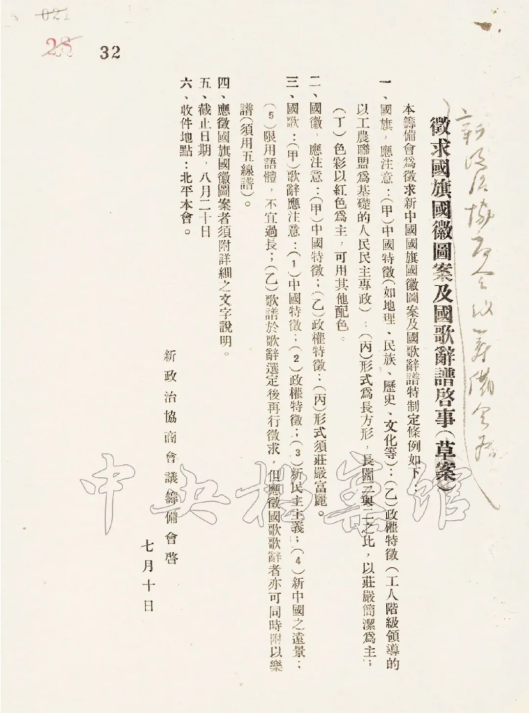 32
28
徵求國旗國徽圖案及國歌辭譜啓事(草案)
本籌備會為徵求新中國國旗國徽圖案及國歌辭譜特制定條例如下：
一、國旗，應注意：(甲)中國特徵(如地理、民族、歷史、文化等)；(乙)政權特徵(工人階級領導的
以工農聯盟為基礎的人民民主專政)；(丙)形式為長方形，長闊三與二之比，以莊嚴簡潔為主；
(丁)色彩以紅色為主，可用其他配色。
二、國徽，應注意：(甲)中國特徵；(乙)政權特徵；(丙)形式須莊嚴富麗。
三、國歌：(甲)歌辭應注意：(1)中國特徵；(2)政權特徵；(3)新民主主義；(4)新中國之遠景；
(5)限用語體，不宜過長；(乙)歌譜於歌辭選定後再行徵求，但應徵國歌歌辭者亦可同時附以樂
譜(須用五線譜)。
四、應徵國旗國徽圖案者須附詳細之文字說明。
五、截止日期，八月二十日
六、收件地點：北平本會。
新政治協商會議籌備會啓
七月十日
中央檔案館